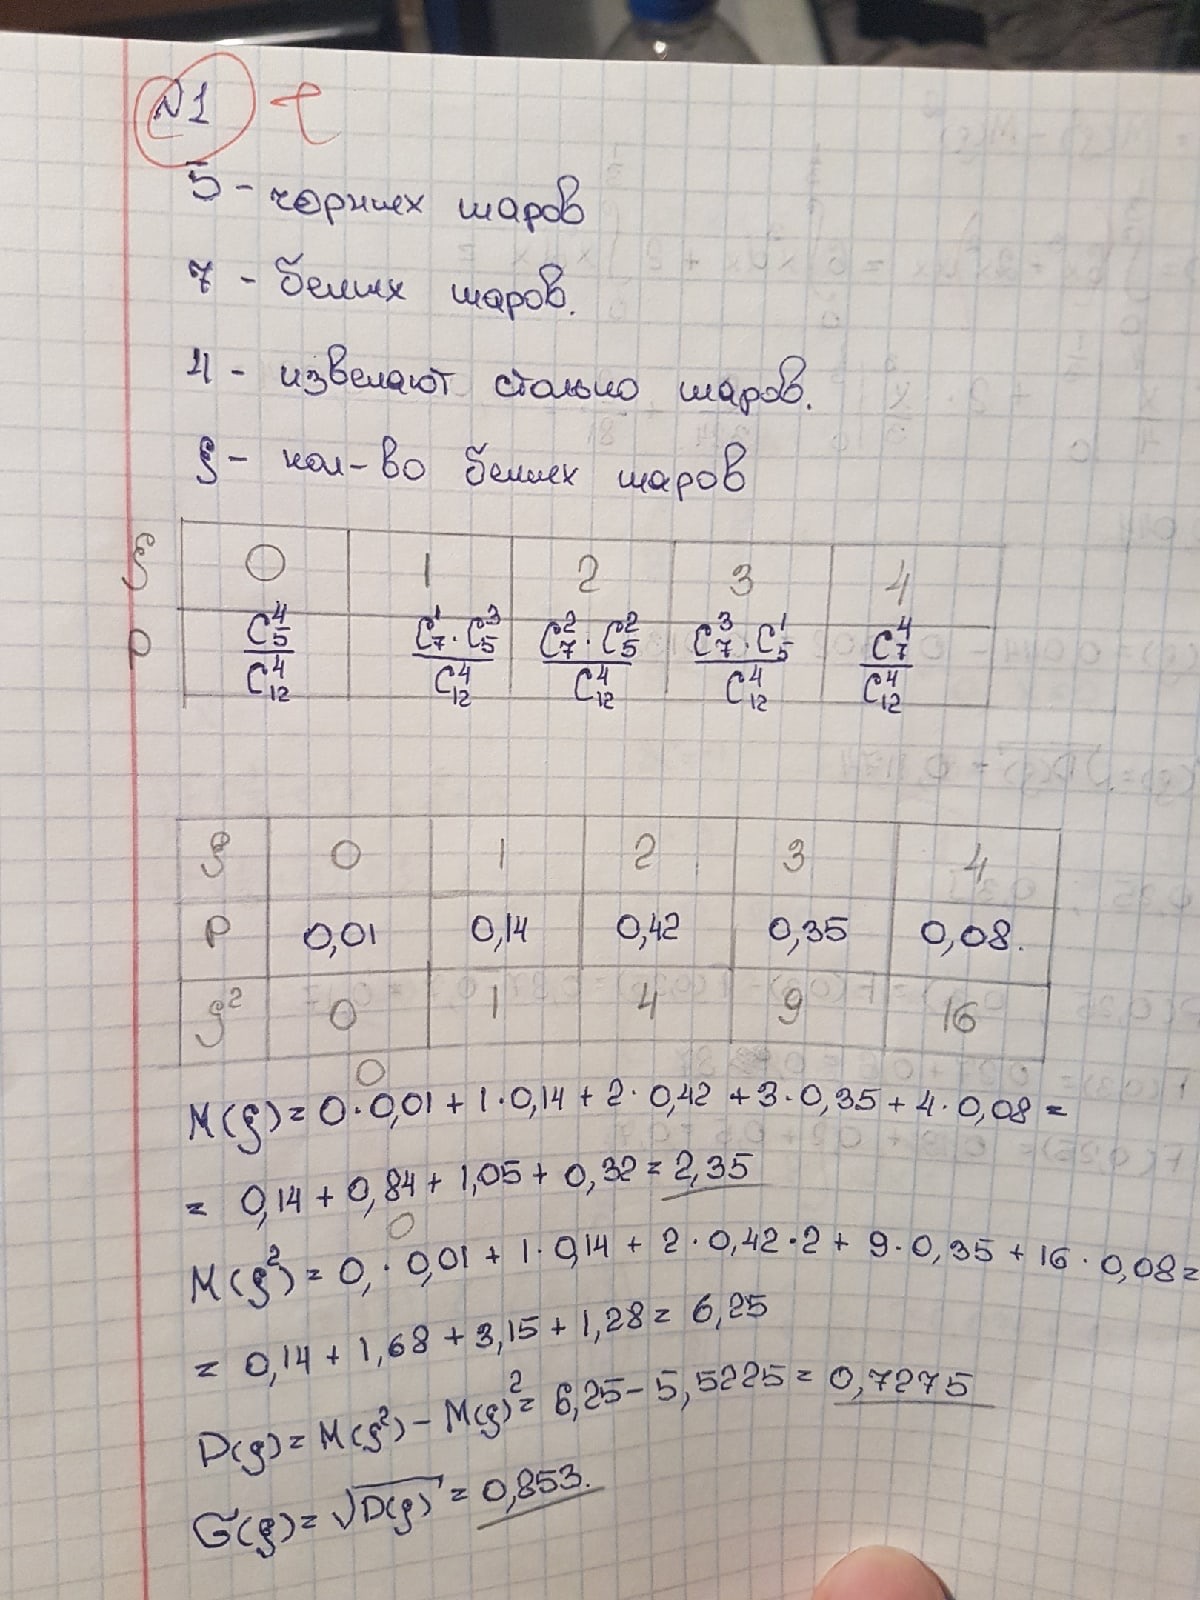 №1
5 - чорних шаров
7 - белых шаров.
4 - извелают столько шаров.
ξ - кол-во белых шаров
ξ 0 1 2 3 4
P C₅⁴/C₁₂⁴ C₇¹·C₅³/C₁₂⁴ C₇²·C₅²/C₁₂⁴ C₇³·C₅¹/C₁₂⁴ C₇⁴/C₁₂⁴
ξ 0 1 2 3 4
P 0,01 0,14 0,42 0,35 0,08.
ξ² 0 1 4 9 16
0
M(ξ) = 0·0,01 + 1·0,14 + 2·0,42 + 3·0,35 + 4·0,08 =
= 0,14 + 0,84 + 1,05 + 0,32 = 2,35
0
M(ξ²) = 0,·0,01 + 1·0,14 + 2·0,42·2 + 9·0,35 + 16·0,08 =
= 0,14 + 1,68 + 3,15 + 1,28 = 6,25
D(ξ) = M(ξ²) - M(ξ)² = 6,25 - 5,5225 = 0,7275
σ(ξ) = √D(ξ) = 0,853.